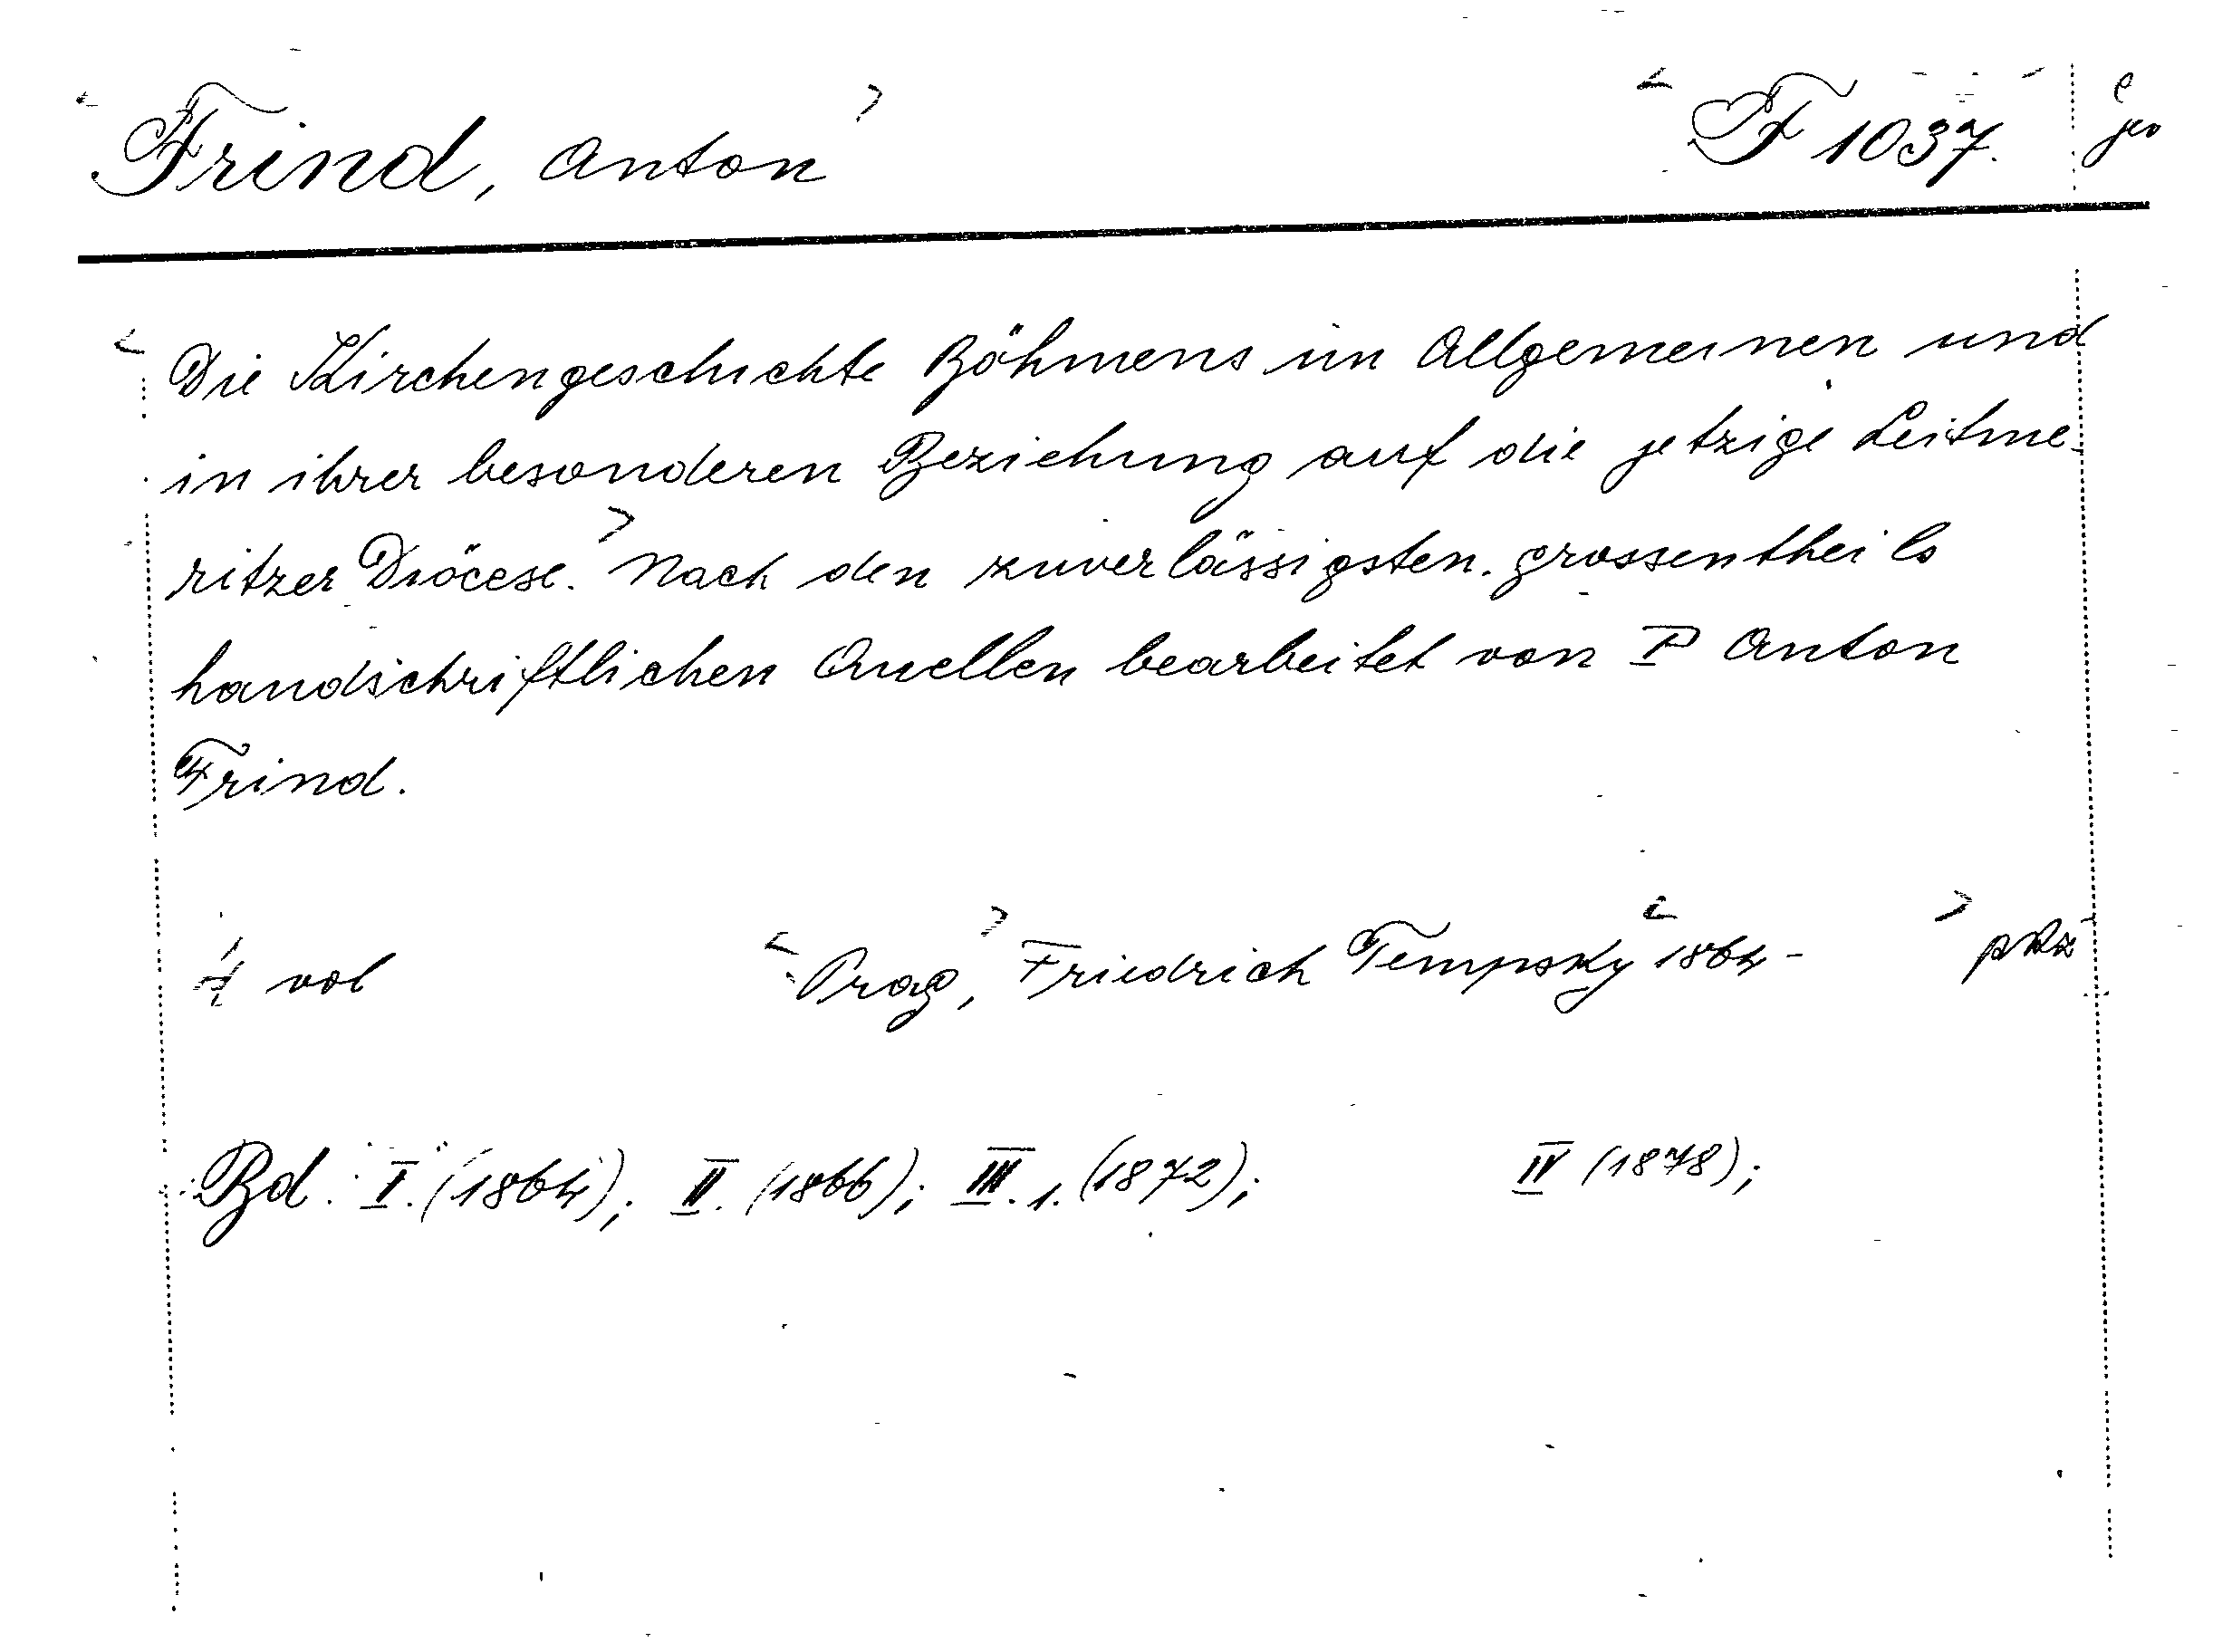 Frind, Anton F 1037.
Die Kirchengeschichte Böhmens im Allgemeinen und
in ihrer besonderen Beziehung auf die jetzige Leitme-
ritzer Diöcese. Nach den zuverlässigsten. grossentheils
handschriftlichen Quellen bearbeitet von P Anton
Frind.
4 vol Prag, Friedrich Tempsky 1864-
Bd. I. (1864); II. (1866); III. 1. (1872); IV (1878);